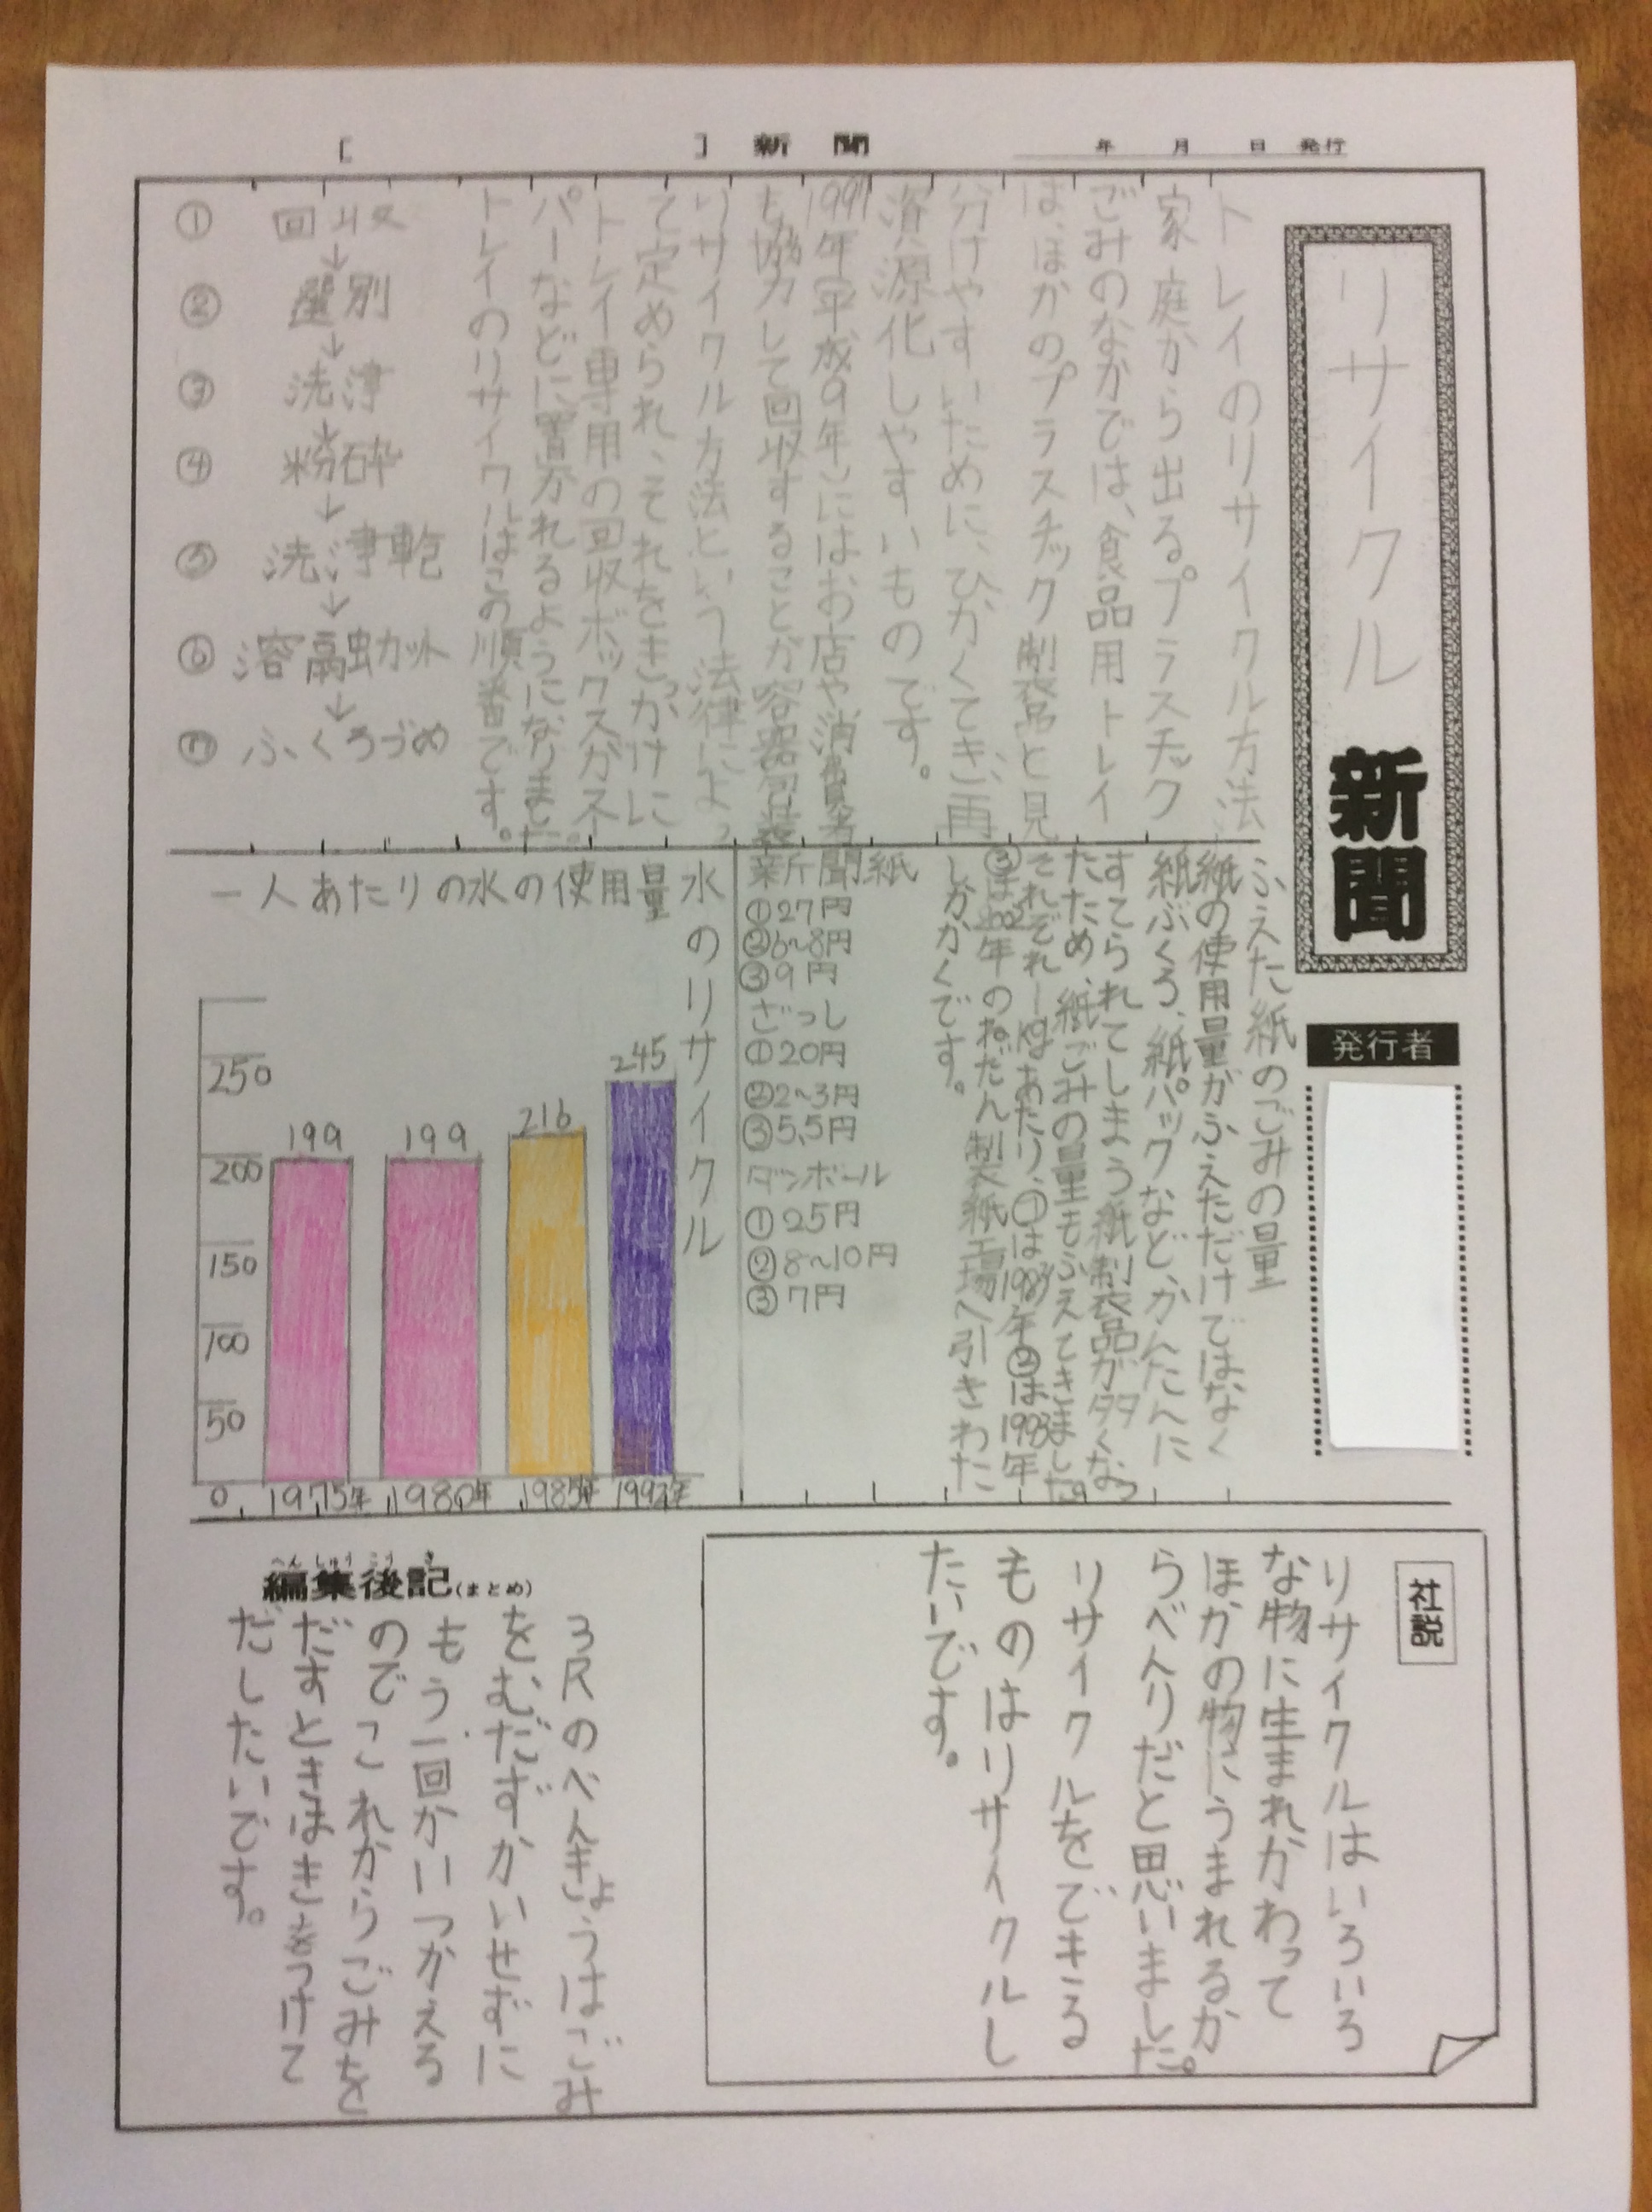 [　　　　] 新聞　　年　月　日 発行
リサイクル
新聞
発行者
トレイのリサイクル方法
家庭から出るプラスチック
ごみのなかでは、食品用トレイ
は、ほかのプラスチック製品と見
分けやすいために、ひかくてき、再
資源化しやすいものです。
1997年(平成9年)にはお店や消費者
も協力して回収することが容器包装
リサイクル方法という法律によっ
て定められ、それをきっかけに
トレイ専用の回収ボックスがスー
パーなどに置かれるようになりました。
トレイのリサイクルはこの順番です。
① 回収
↓
② 選別
↓
③ 洗浄
↓
④ 粉砕
↓
⑤ 洗浄乾
↓
⑥ 溶融カット
↓
⑦ ふくろづめ
ふえた紙のごみの量
紙の使用量がふえただけではなく
紙ぶくろ、紙パックなど、かんたんに
すてられてしまう紙製品が多くなっ
たため、紙ごみの量もふえてきました。
それぞれ一kgあたり、①は1987年②は1993年
③は2002年のねだん製紙工場へ引きわた
しかかくです。
新聞紙
①27円
②6~8円
③9円
ざっし
①20円
②2~3円
③5.5円
ダンボール
①25円
②8~10円
③7円
水のリサイクル
一人あたりの水の使用量
250
200
150
100
50
0
199
199
216
245
1975年
1980年
1985年
社説
リサイクルはいろいろ
な物に生まれかわって
ほかの物にうまれるか
らべんりだと思いました。
リサイクルをできる
ものはリサイクルし
たいです。
へんしゅうこうき
編集後記(まとめ)
3Rのべんきょうはごみ
をむだずかいせずに
もう一回かいつかえる
のでこれからごみを
だすときはきをつけて
だしたいです。